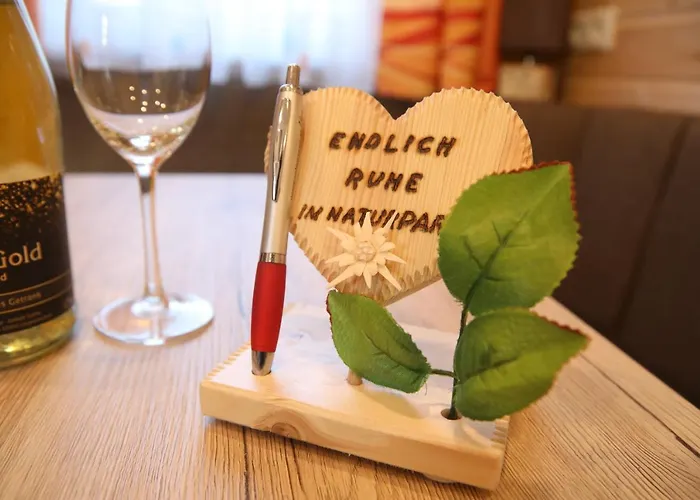 Gold
d
s Getränk
ENDLICH
RUHE
IM NATURPAR